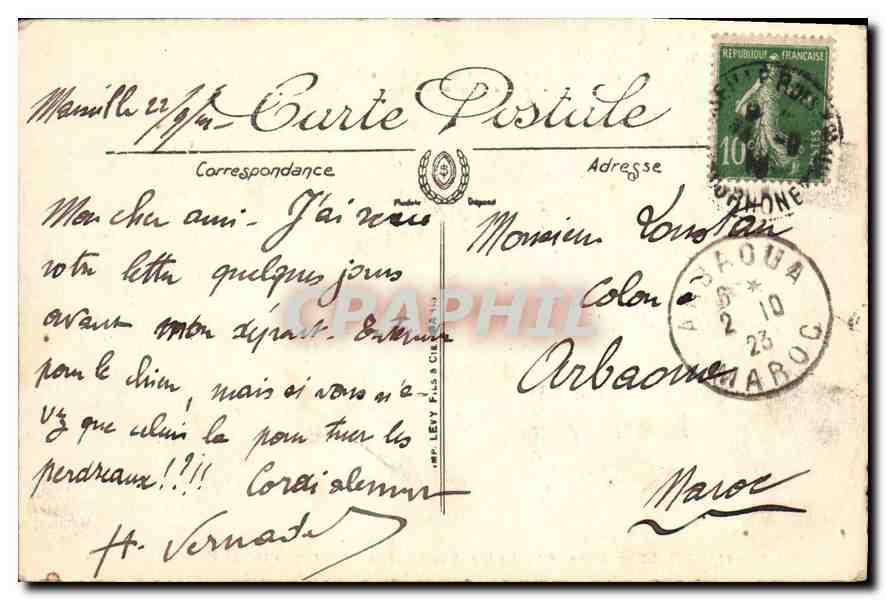 Marseille 22/9/23
Carte Postale
Correspondance
Adresse
REPUBLIQUE FRANÇAISE
10c
POSTES
Modèle Déposé
Mon cher ami - J'ai reçu
votre lettre quelques jours
avant mon départ. Entendu
pour le chien, mais si vous n'a-
vez que celui là pour tuer les
perdreaux!?!!! Cordialement
H. Vernade
IMP. LEVY FILS & CIE PARIS
Monsieur Loustau
Colon à
Arbaoua
Maroc
ARBAOUA
6 *
2 10
23
MAROC
RHONE
CPAPHIL